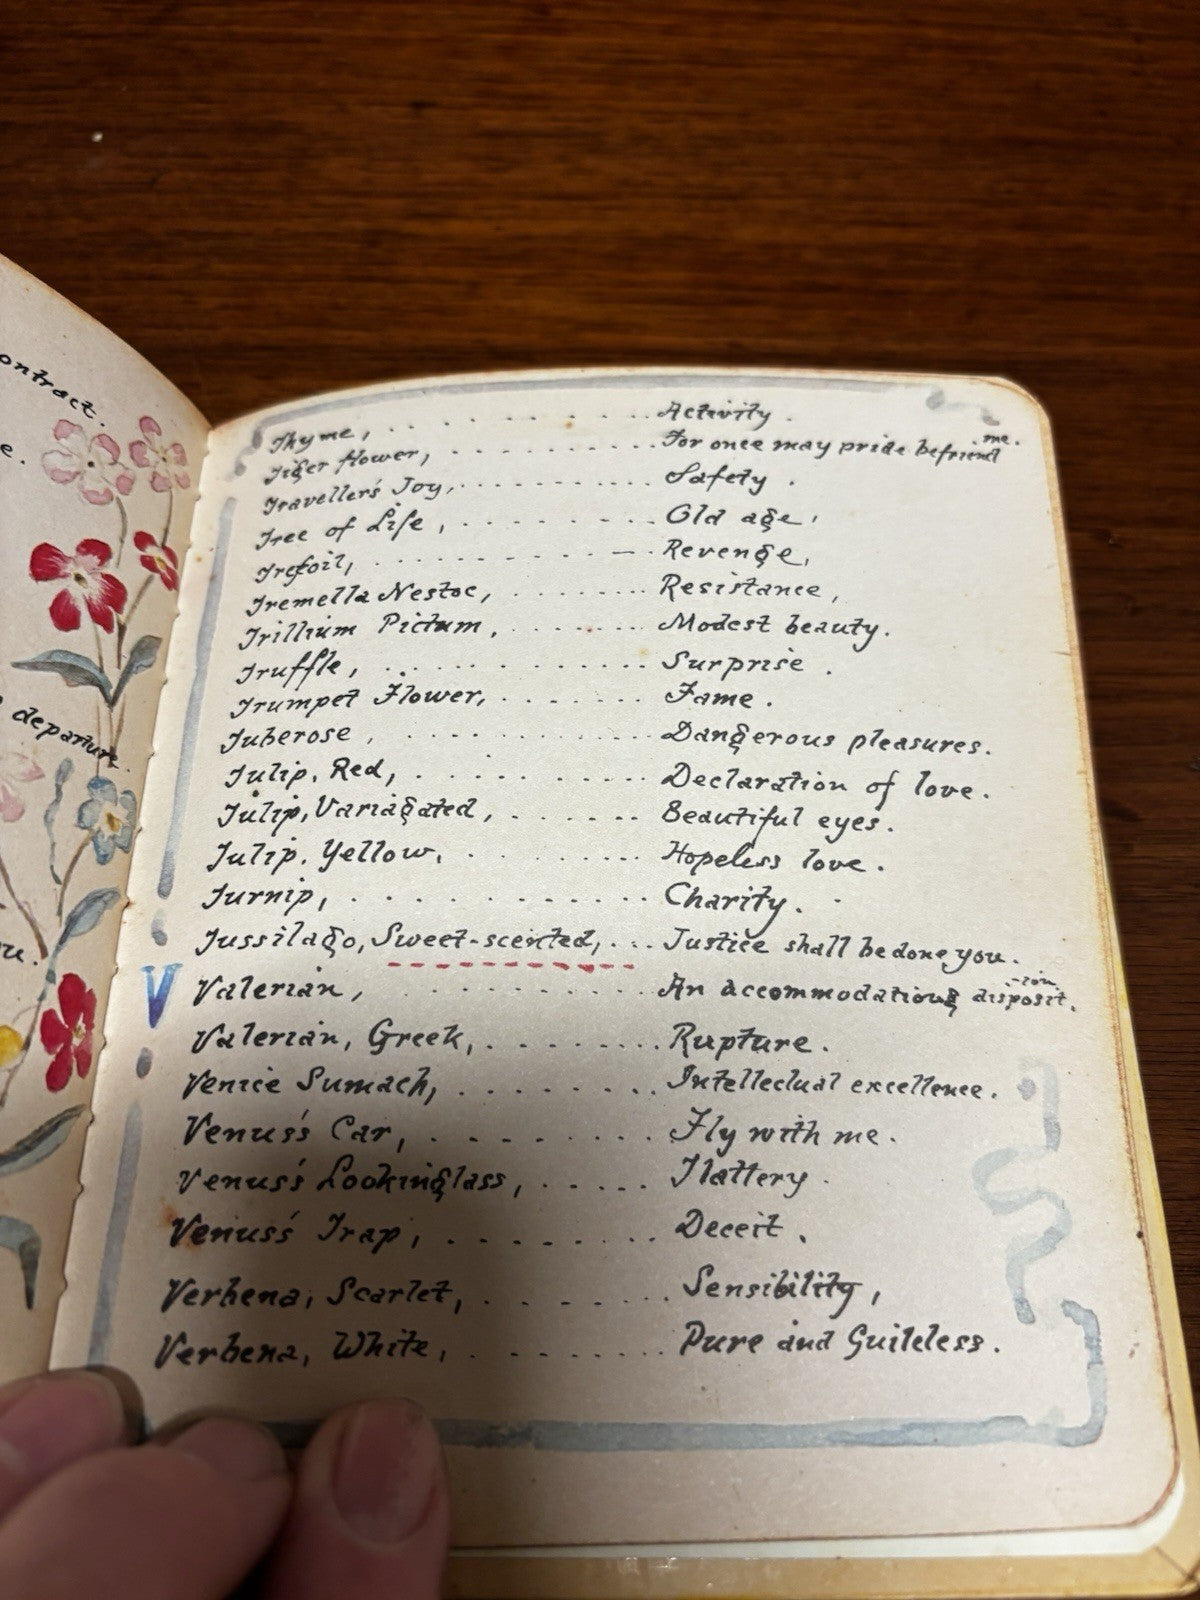 ontract.
e.
departure.
u.
Thyme, . . . . . . . . . Activity.
Tiger flower, . . . . . . . . . For once may pride befriend me.
Traveller's Joy, . . . . . . . . . . Safety.
Tree of Life, . . . . . . . . . Old age.
Trefoil, . . . . . . . . . . Revenge,
Tremella Nestoc, . . . . . . . . Resistance,
Trillium Pictum, . . . . . . . . Modest beauty.
Truffle, . . . . . . . . . . . Surprise.
Trumpet Flower, . . . . . . . . Fame.
Tuberose, . . . . . . . . . . Dangerous pleasures.
Tulip, Red, . . . . . . . . . . Declaration of love.
Tulip, Variagated, . . . . . . . Beautiful eyes.
Tulip, Yellow, . . . . . . . . . Hopeless love.
Turnip, . . . . . . . . . . . Charity.
Tussilago, Sweet-scented, . . . Justice shall be done you.
V Valerian, . . . . . . . . . . An accommodating disposit-ion.
Valerian, Greek, . . . . . . . . Rupture.
Venice Sumach, . . . . . . . . Intellectual excellence.
Venus's Car, . . . . . . . . . Fly with me.
Venus's Lookinglass, . . . . . Flattery.
Venus's Trap, . . . . . . . . Deceit.
Verbena, Scarlet, . . . . . . . Sensibility,
Verbena, White, . . . . . . . . Pure and Guileless.